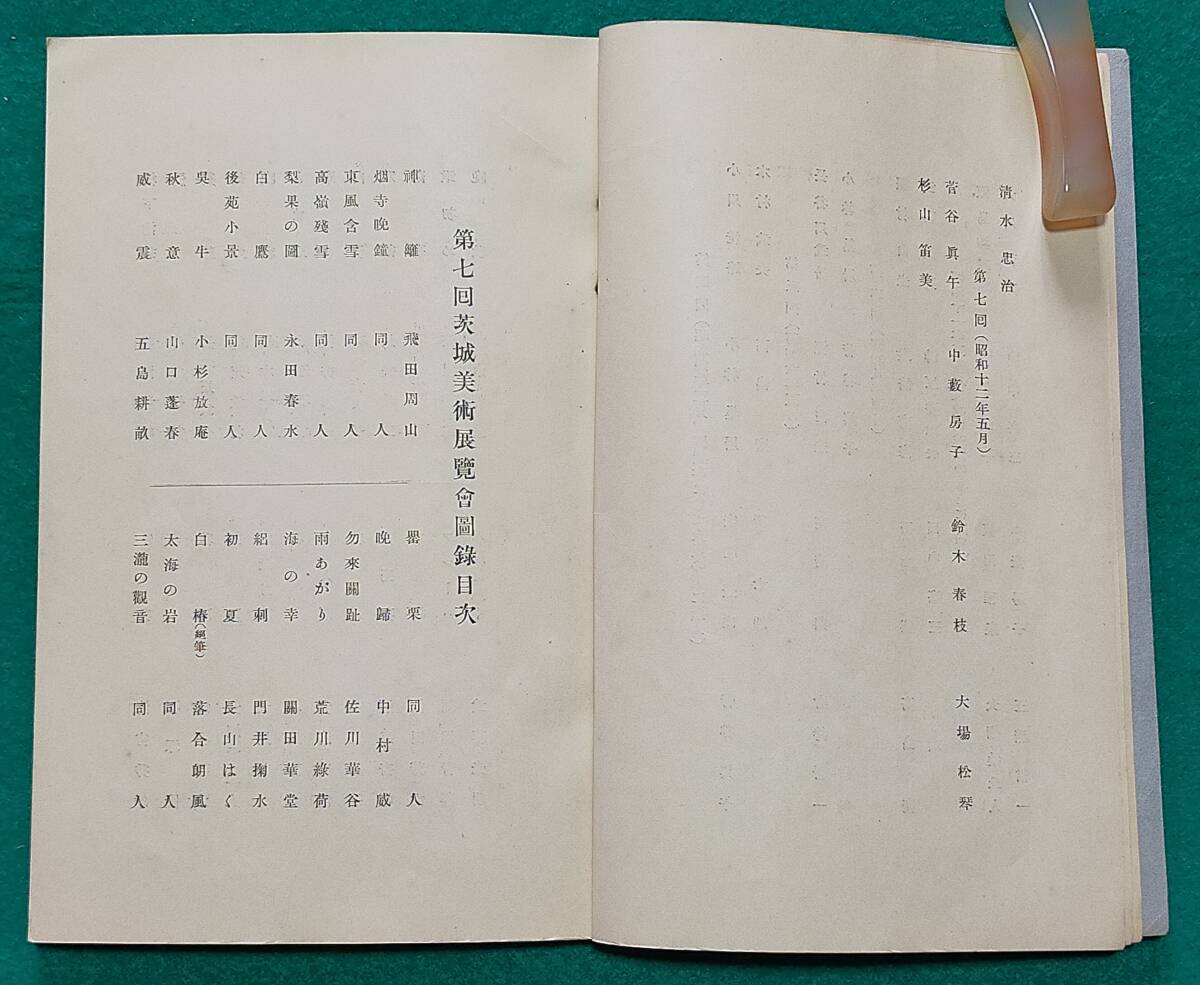 清水忠治
第七回(昭和十二年五月)
菅谷眞午 中藪房子 鈴木春枝 大場松琴
杉山笛美
第七回茨城美術展覽會圖錄目次
神籬 飛田周山
烟寺晚鐘 同人
東風含雪 同人
高嶺殘雪 同人
梨果の圖 永田春水
白鷹 同人
後苑小景 同人
吳牛 小杉放庵
秋意 山口蓬春
威震 五島耕畝
罌粟 同人
晚歸 中村威
勿來關趾 佐川華谷
雨あがり 荒川綠荷
海の幸 關田華堂
絽刺 門井掬水
初夏 長山はく
白椿(絕筆) 落合朗風
太海の岩 同人
三瀧の觀音 同人